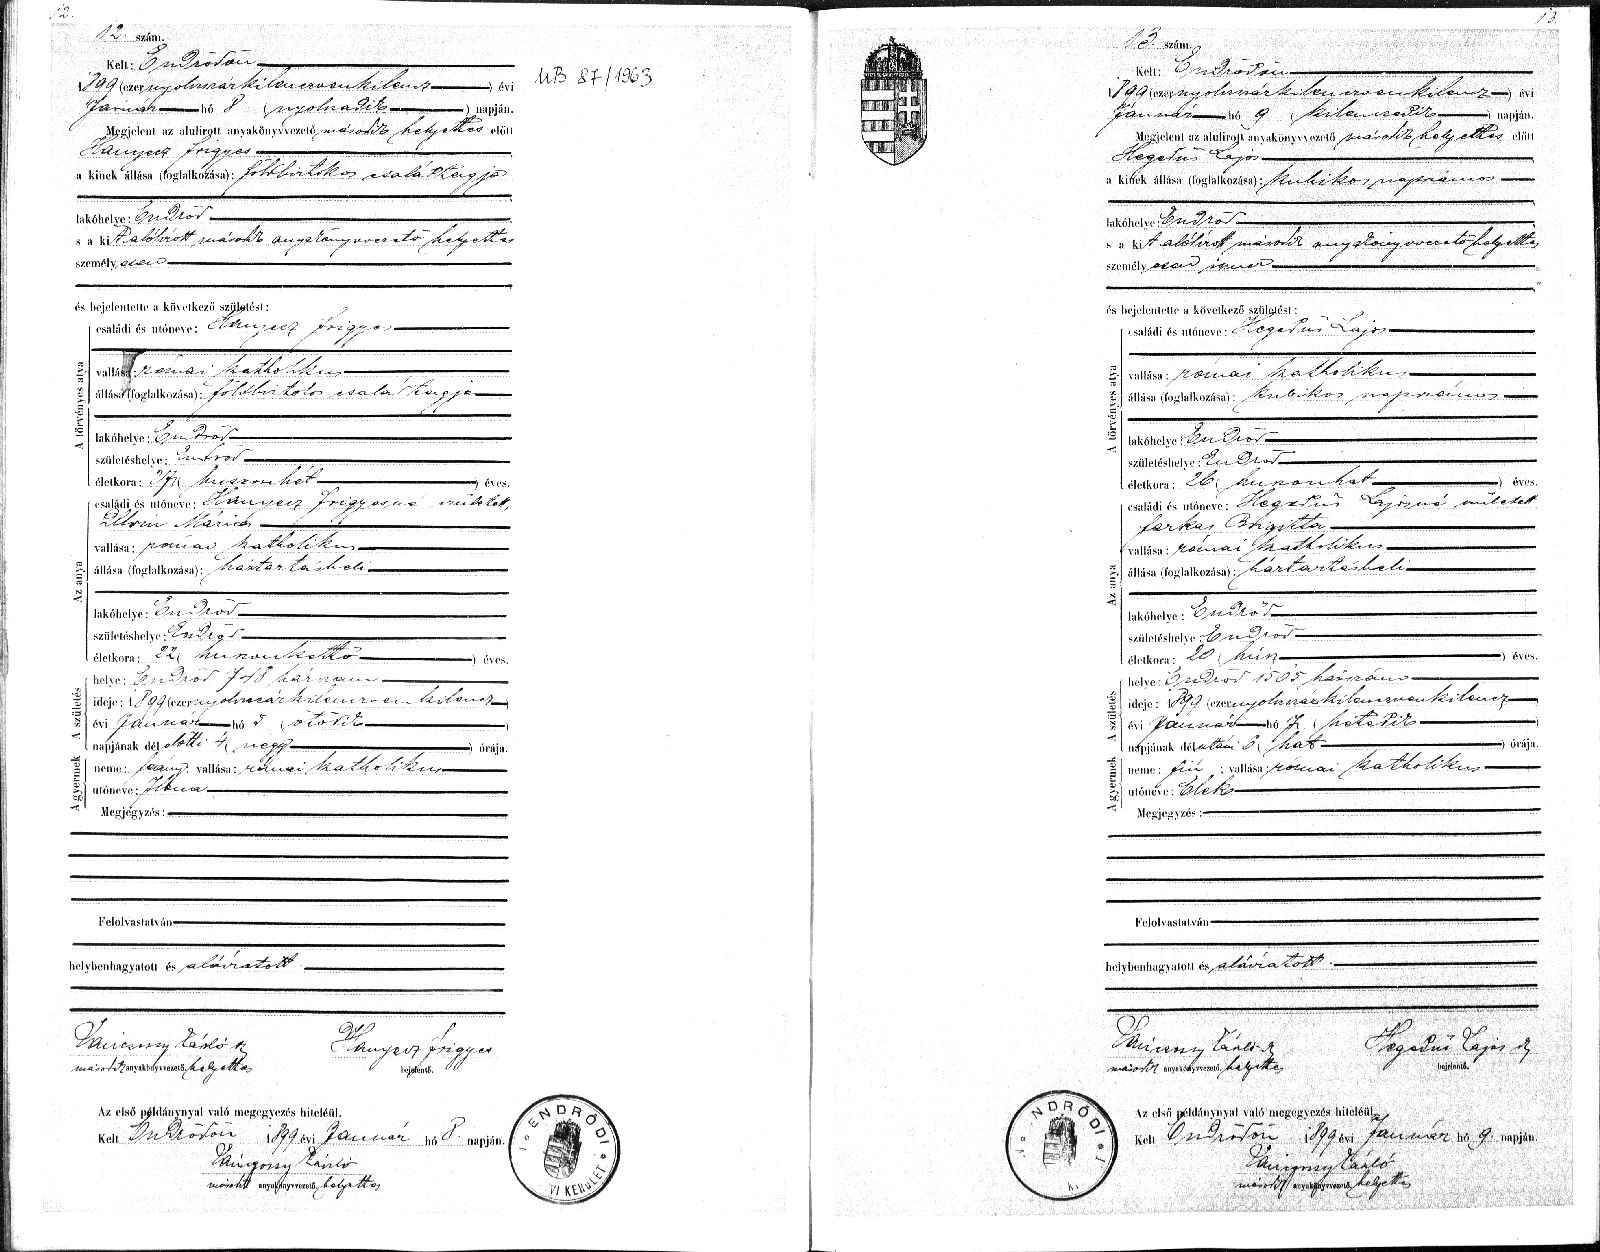 12.
12 szám.
Kelt: Endrődön
1899 (ezernyolcszázkilencvenkilenc) évi
Január hó 8 (nyolcadik) napján.
Megjelent az alulirott anyakönyvvezető második helyettes előtt
Hanyecz Frigyes
a kinek állása (foglalkozása): földbirtokos család tagja
lakóhelye: Endrőd
s a kit alólirott, második anyakönyvvezető helyettes
személyesen
és bejelentette a következő születést:
A törvényes atya
családi és utóneve: Hanyecz Frigyes
vallása: római katholikus
állása (foglalkozása): földbirtokos család tagja
lakóhelye: Endrőd
születéshelye: Endrőd
életkora: 27 (huszonhét) éves.
Az anya
családi és utóneve: Hanyecz Frigyesné született
Mária
vallása: római katholikus
állása (foglalkozása): háztartásbeli
lakóhelye: Endrőd
születéshelye: Endrőd
életkora: 22 (huszonkettő) éves.
A születés
helye: Endrőd 748 házszám
ideje: 1899 (ezernyolcszázkilencvenkilenc)
évi Január hó 5 (ötödik)
napjának délelőtti 4 (négy) órája.
A gyermek
neme: leány; vallása: római katholikus
utóneve: Ilona
Megjegyzés:
Felolvastatván
helybenhagyatott és aláíratott
László k
második anyakönyvvezető helyettes
Hanyecz Frigyes
bejelentő.
Az első példánynyal való megegyezés hiteléül.
Kelt Endrődön 1899 évi Január hó 8. napján.
László
második anyakönyvvezető helyettes
ENDRŐDI
VI KERÜLET
MB 87/1963
13.
13 szám.
Kelt: Endrődön
1899 (ezernyolcszázkilencvenkilenc) évi
Január hó 9 (kilencedik) napján.
Megjelent az alulirott anyakönyvvezető második helyettes előtt
Hegedüs Lajos
a kinek állása (foglalkozása): kubikos napszámos
lakóhelye: Endrőd
s a kit alólirott második anyakönyvvezető helyettes
személyesen ismer
és bejelentette a következő születést:
A törvényes atya
családi és utóneve: Hegedüs Lajos
vallása: római katholikus
állása (foglalkozása): kubikos napszámos
lakóhelye: Endrőd
születéshelye: Endrőd
életkora: 26 (huszonhat) éves.
Az anya
családi és utóneve: Hegedüs Lajosné született
Farkas Brigitta
vallása: római katholikus
állása (foglalkozása): háztartásbeli
lakóhelye: Endrőd
születéshelye: Endrőd
életkora: 20 (húsz) éves.
A születés
helye: Endrőd 1505 házszám
ideje: 1899 (ezernyolcszázkilencvenkilenc)
évi Január hó 7 (hetedik)
napjának délutáni 6 (hat) órája.
A gyermek
neme: fiú; vallása: római katholikus
utóneve: Elek
Megjegyzés:
Felolvastatván
helybenhagyatott és aláíratott
László k
második anyakönyvvezető helyettes
Hegedüs Lajos k
bejelentő.
Az első példánynyal való megegyezés hiteléül.
Kelt Endrődön 1899 évi Január hó 9. napján.
László
második anyakönyvvezető helyettes
NDRŐDI